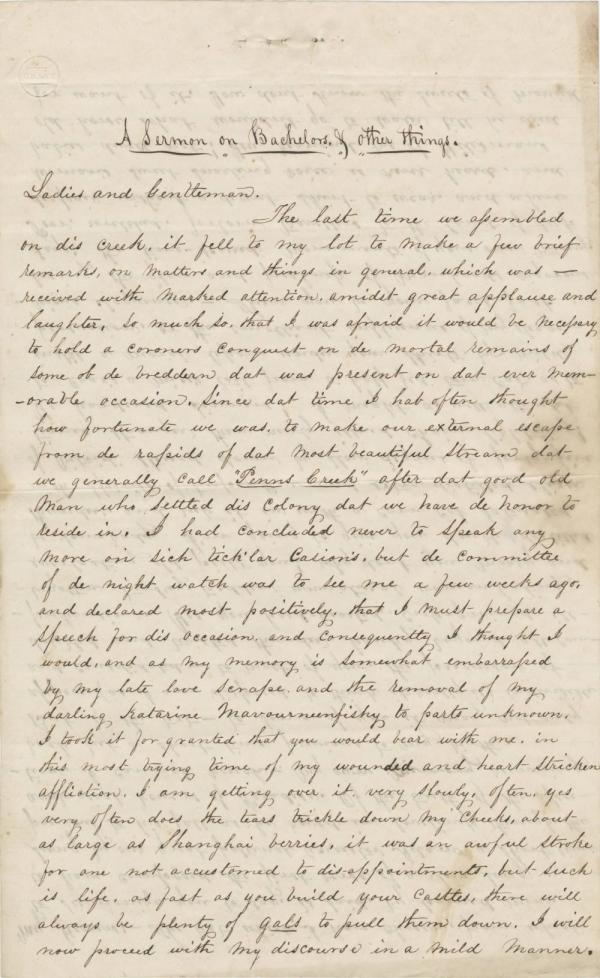 A Sermon on Bachelors, & other things.
Ladies and Gentleman.
The last time we assembled
on dis creek, it fell to my lot to make a few brief
remarks, on matters and things in general, which was —
received with marked attention, amidst great applause and
laughter, so much so, that I was afraid it would be necessary
to hold a coroners conquest on de mortal remains of
some ob de breddern dat was present on dat ever mem-
-orable occasion. Since dat time I hab often thought
how fortunate we was, to make our external escape
from de rapids of dat most beautiful Stream dat
we generally call "Penns Creek" after dat good old
man who settled dis colony dat we have de honor to
reside in. I had concluded never to speak any
more on sich tick'lar Casion's, but de committee
of de night watch was to see me a few weeks ago,
and declared most positively, that I must prepare a
speech for dis occasion, and consequently I thought I
would, and as my memory is somewhat embarrassed
by my late love scrape, and the removal of my
darling Katarine Mavourneenfisky to parts unknown,
I took it for granted that you would bear with me, in
this most trying time of my wounded and heart stricken
affliction. I am getting over it very slowly, often, yes
very often does the tears trickle down my cheeks, about
as large as Shanghai berries, it was an awful stroke
for one not accustomed to dis-appointments, but such
is life, as fast as you build your Casttes, there will
always be plenty of gals to pull them down. I will
now proceed with my discourse in a mild manner.